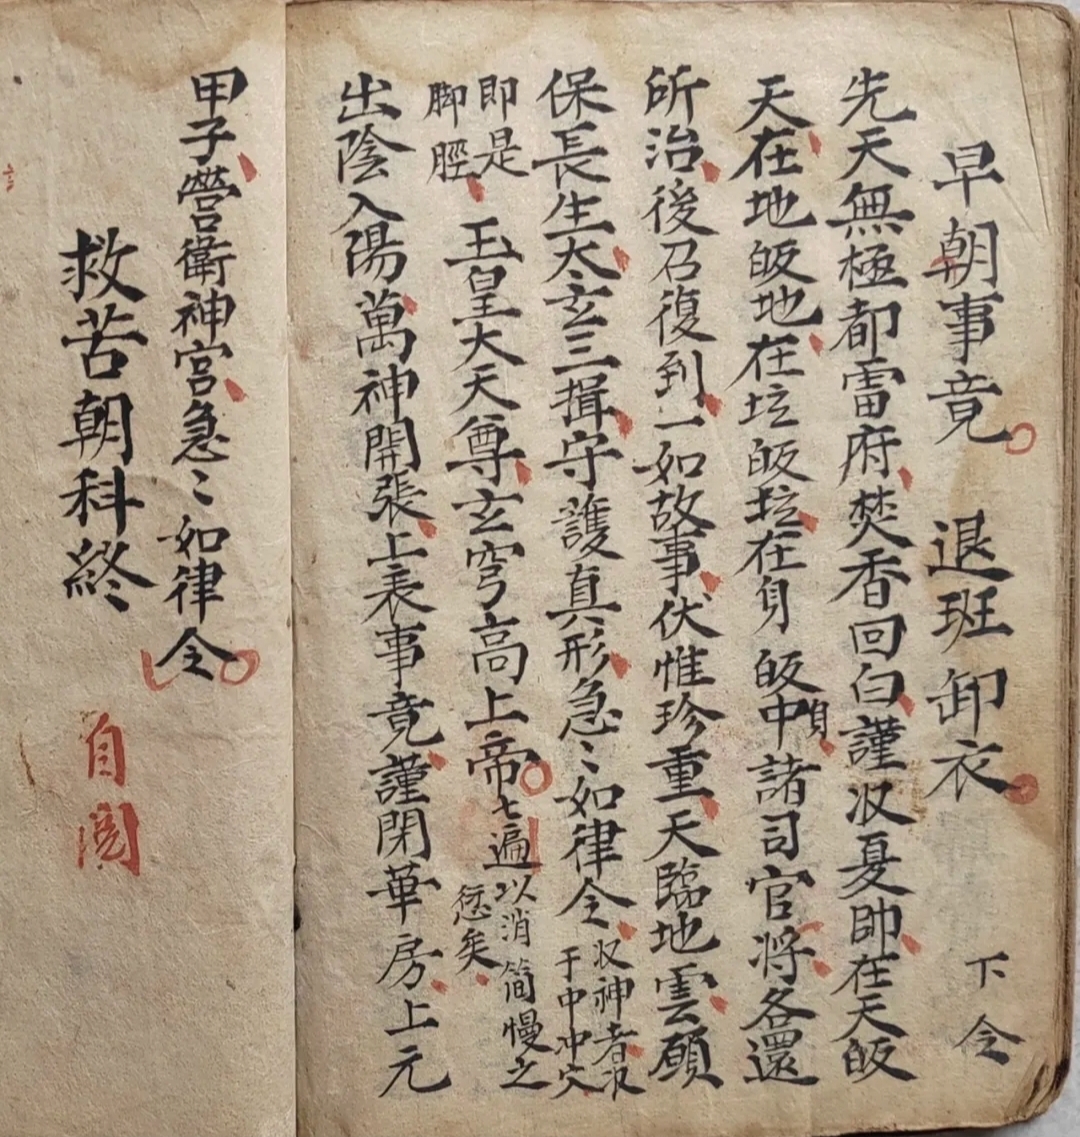 早朝事竟 退班卸衣 下令
先天無極都雷府焚香回白謹収夏帥在天皈
天在地皈地在坛皈坛在身皈身中諸司官将各還
所治後召復到一如故事伏惟珍重天臨地雲願
保長生太玄三揖守護真形急〻如律令収神者収
于中冲穴
即是
脚脛 玉皇大天尊玄穹高上帝七遍以消简慢之
愆矣
出陰入陽萬神開張上表事竟謹閉華房上元
甲子營衛神宫急〻如律令
救苦朝科終
自閲